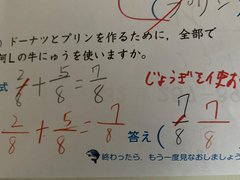 プリン
ドーナツとプリンを作るために、全部で
何Lの牛にゅうを使いますか。
式 2/8 + 5/8 = 7/8
じょうぎを使お
2/8 + 5/8 = 7/8
答え ( 7/8 7/8
終わったら、もう一度見なおしましょう